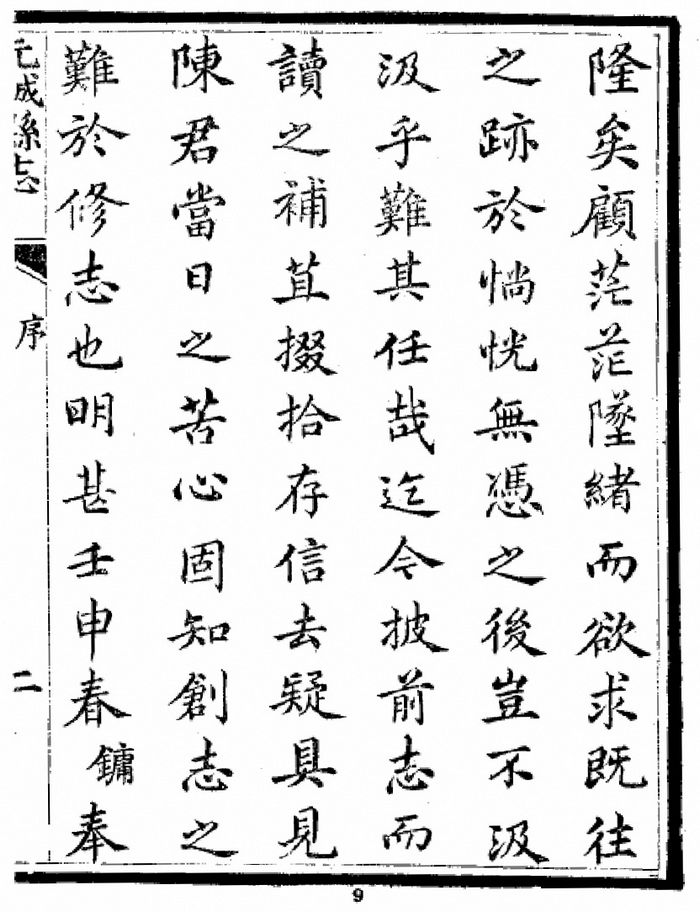 隆矣顧茫茫墜緒而欲求既往
之跡於惝恍無憑之後豈不汲
汲乎難其任哉迄今披前志而
讀之補苴掇拾存信去疑具見
陳君當日之苦心固知創志之
難於修志也明甚壬申春鏞奉
元城縣志
序
二
9